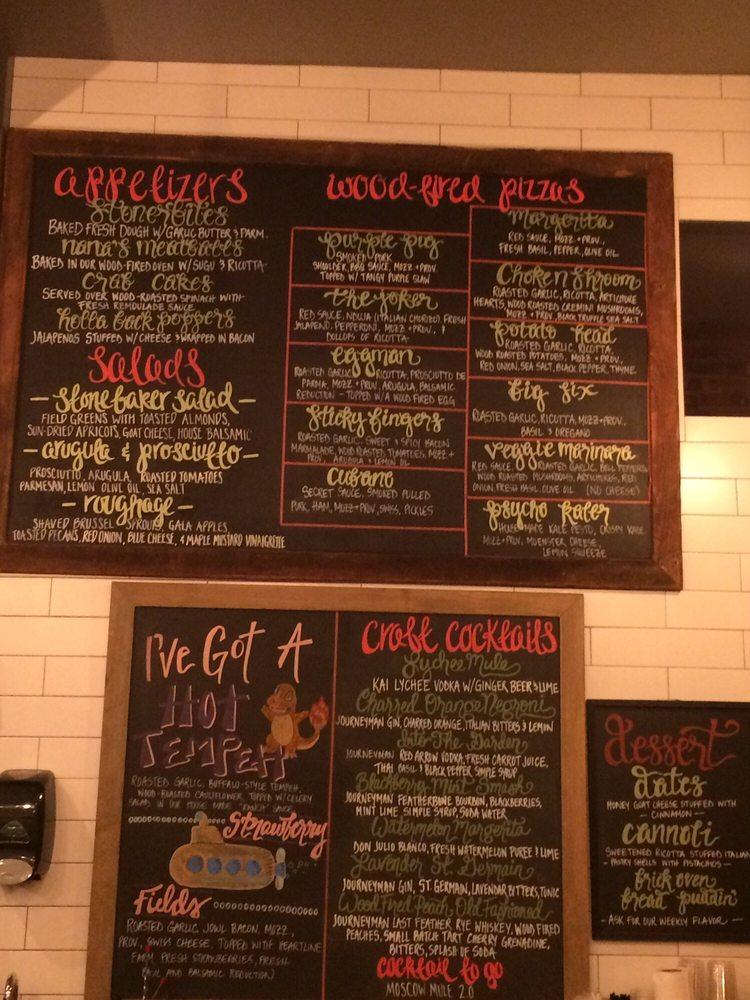 appetizers
stonerbites
BAKED FRESH DOUGH W/GARLIC BUTTER & PARM.
nana's meatballs
BAKED IN OUR WOOD-FIRED OVEN W/SUGU & RICOTTA
Crab Cakes
SERVED OVER WOOD-ROASTED SPINACH WITH
FRESH REMOULADE SAUCE
holla back poppers
JALAPENOS STUFFED W/CHEESE & WRAPPED IN BACON
Salads
- stonebaker salad -
FIELD GREENS WITH TOASTED ALMONDS,
SUN-DRIED APRICOTS, GOAT CHEESE, HOUSE BALSAMIC
- arugula & prosciutto -
PROSCIUTTO, ARUGULA, ROASTED TOMATOES
PARMESAN, LEMON OLIVE OIL, SEA SALT
- roughage -
SHAVED BRUSSEL SPROUTS, GALA APPLES,
TOASTED PECANS, RED ONION, BLUE CHEESE, & MAPLE MUSTARD VINAIGRETTE
wood-fired pizzas
purple pug
SMOKED PORK
SHOULDER, BBQ SAUCE, MOZZ + PROV.
TOPPED W/ TANGY PURPLE SLAW
the joker
RED SAUCE, NDUJA (ITALIAN CHORIZO) FRESH
JALAPENO, PEPPERONI, MOZZ + PROV., &
DOLLOPS OF RICOTTA
eggman
ROASTED GARLIC, RICOTTA, PROSCIUTTO DE
PARMA, MOZZ + PROV, ARUGULA, BALSAMIC
REDUCTION - TOPPED W/A WOOD FIRED EGG
Sticky fingers
ROASTED GARLIC, SWEET & SPICY BACON
MARMALADE, WOOD ROASTED TOMATOES, MOZZ +
PROV, ARUGULA & LEMON OIL
Cubano
SECRET SAUCE, SMOKED PULLED
PORK, HAM, MOZZ + PROV, SWISS, PICKLES
Margerita
RED SAUCE, MOZZ + PROV.,
FRESH BASIL, PEPPER, OLIVE OIL
Choken Shroom
ROASTED GARLIC, RICOTTA, ARTICHOKE
HEARTS, WOOD ROASTED CREMINI MUSHROOMS,
MOZZ + PROV, BLACK TRUFFLE SEA SALT
potato head
ROASTED GARLIC, RICOTTA,
WOOD ROASTED POTATOES, MOZZ + PROV.,
RED ONION, SEA SALT, BLACK PEPPER, THYME
big six
ROASTED GARLIC, RICOTTA, MOZZ + PROV.,
BASIL & OREGANO
veggie marinara
RED SAUCE, ROASTED GARLIC, BELL PEPPERS,
WOOD ROASTED MUSHROOMS, ARTICHOKES, RED
ONION, FRESH BASIL, OLIVE OIL (NO CHEESE)
psycho kaler
HOUSE MADE KALE PESTO, CRISPY KALE
MOZZ + PROV, MUENSTER CHEESE,
LEMON SQUEEZE
I've Got A
HOT
TEMPEH
ROASTED GARLIC, BUFFALO-STYLE TEMPEH,
WOOD-ROASTED CAULIFLOWER TOPPED W/CELERY
SALAD IN OUR HOUSE MADE "RANCH" SAUCE
Strawberry
Fields
ROASTED GARLIC, JOWL BACON, MOZZ,
PROV, SWISS CHEESE, TOPPED WITH HEARTLINE
FARM FRESH STRAWBERRIES, FRESH
BASIL AND BALSAMIC REDUCTION)
craft cocktails
Lychee Mule
KAI LYCHEE VODKA W/GINGER BEER & LIME
Charred Orange Negroni
JOURNEYMAN GIN, CHARRED ORANGE, ITALIAN BITTERS & LEMON
Into The Garden
JOURNEYMAN RED ARROW VODKA, FRESH CARROT JUICE,
THAI BASIL & BLACK PEPPER SIMPLE SYRUP
Blackberry Mint Smash
JOURNEYMAN FEATHERBONE BOURBON, BLACKBERRIES,
MINT LIME SIMPLE SYRUP, SODA WATER
Watermelon Margerita
DON JULIO BLANCO, FRESH WATERMELON PUREE & LIME
Lavender St. Germain
JOURNEYMAN GIN, ST. GERMAIN, LAVENDAR BITTERS, TONIC
Wood Fired Peach Old Fashioned
JOURNEYMAN LAST FEATHER RYE WHISKEY, WOOD FIRED
PEACHES, SMALL BATCH TART CHERRY GRENADINE,
BITTERS, SPLASH OF SODA
cocktail to go
MOSCOW MULE 2.0
dessert
dates
HONEY GOAT CHEESE STUFFED WITH
- CINNAMON -
cannoli
SWEETENED RICOTTA STUFFED ITALIAN
- PASTRY SHELLS WITH PISTACHIOS -
brick oven
bread puddin'
- ASK FOR OUR WEEKLY FLAVOR -